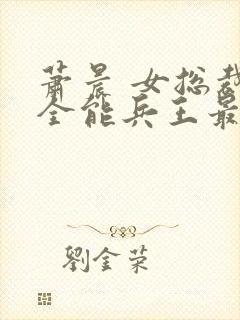 萧晨 女总裁
全能兵王最
劉金荣